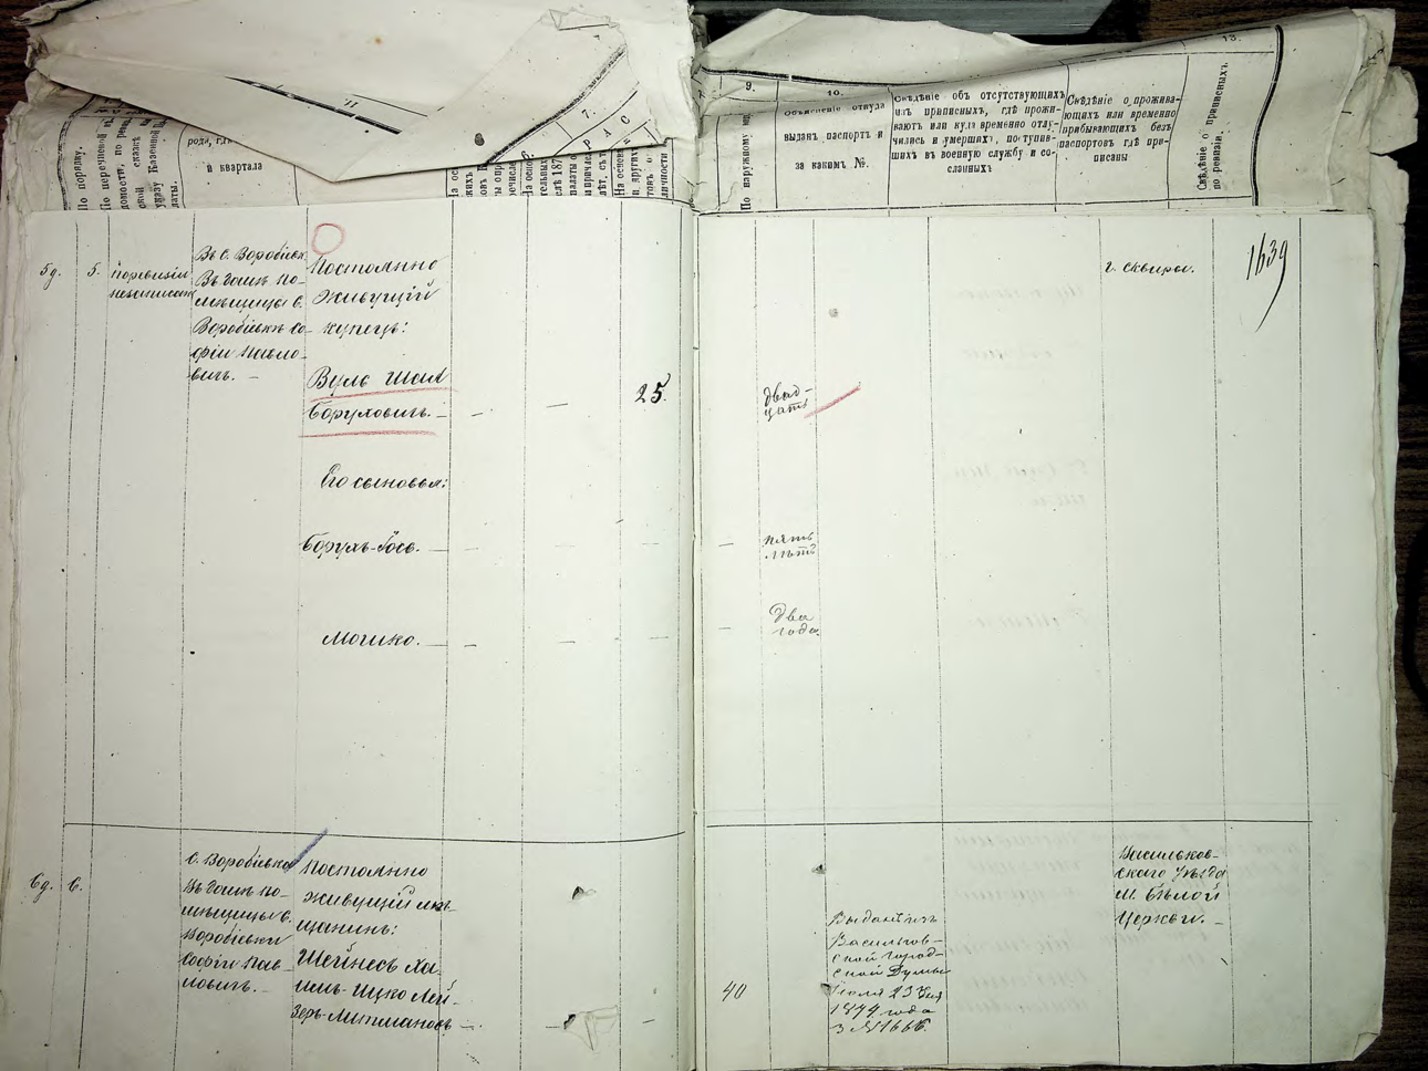 7.
Р А С
рода, гд
й квартала
По порядку.
По перечневой
домости, по ре
ской сказкѣ
указу Казенной
латы.
9.
10.
13.
По наружному
Объясненіе откуда
выданъ паспортъ и
за какимъ №.
Свѣдѣніе объ отсутствующихъ
изъ приписныхъ, гдѣ прожи-
ваютъ или куда временно отлу-
чились и умершихъ, поступив-
шихъ въ военную службу и со-
сланныхъ
Свѣдѣніе о прожива-
ющихъ или временно
прибывающихъ безъ
паспортовъ гдѣ при-
писаны
Свѣдѣніе о приписныхъ
по ревизіи.
1639
5д.
5.
По ревизіи
незаписанъ
Въ с. Воробіевк
Въ домѣ по-
мѣщицы с.
Воробіевкѣ Со-
фіи Павло-
вичъ. —
Постоянно
живущій
купецъ:
Вулъ Шая
Боруховичъ. —
25.
двад-
цать
г. Сквиры.
Его сыновья:
Борухъ-Іосъ. —
пять
лѣтъ
Мошко. —
два
года
6д.
6.
С. Воробіевка
Въ домѣ по-
мѣщицы с.
Воробіевки
Софіи Пав-
ловичъ. —
Постоянно
живущій мѣ-
щанинъ:
Шейнесъ Ха-
имъ-Ицко Лей-
зеръ-Литмановъ —
40
Выданъ изъ
Васильков-
ской Город-
ской Думы
Іюля 23 дня
1874 года
за №1666.
Васильков-
скаго уѣзда
м. Бѣлой
Церкви. —